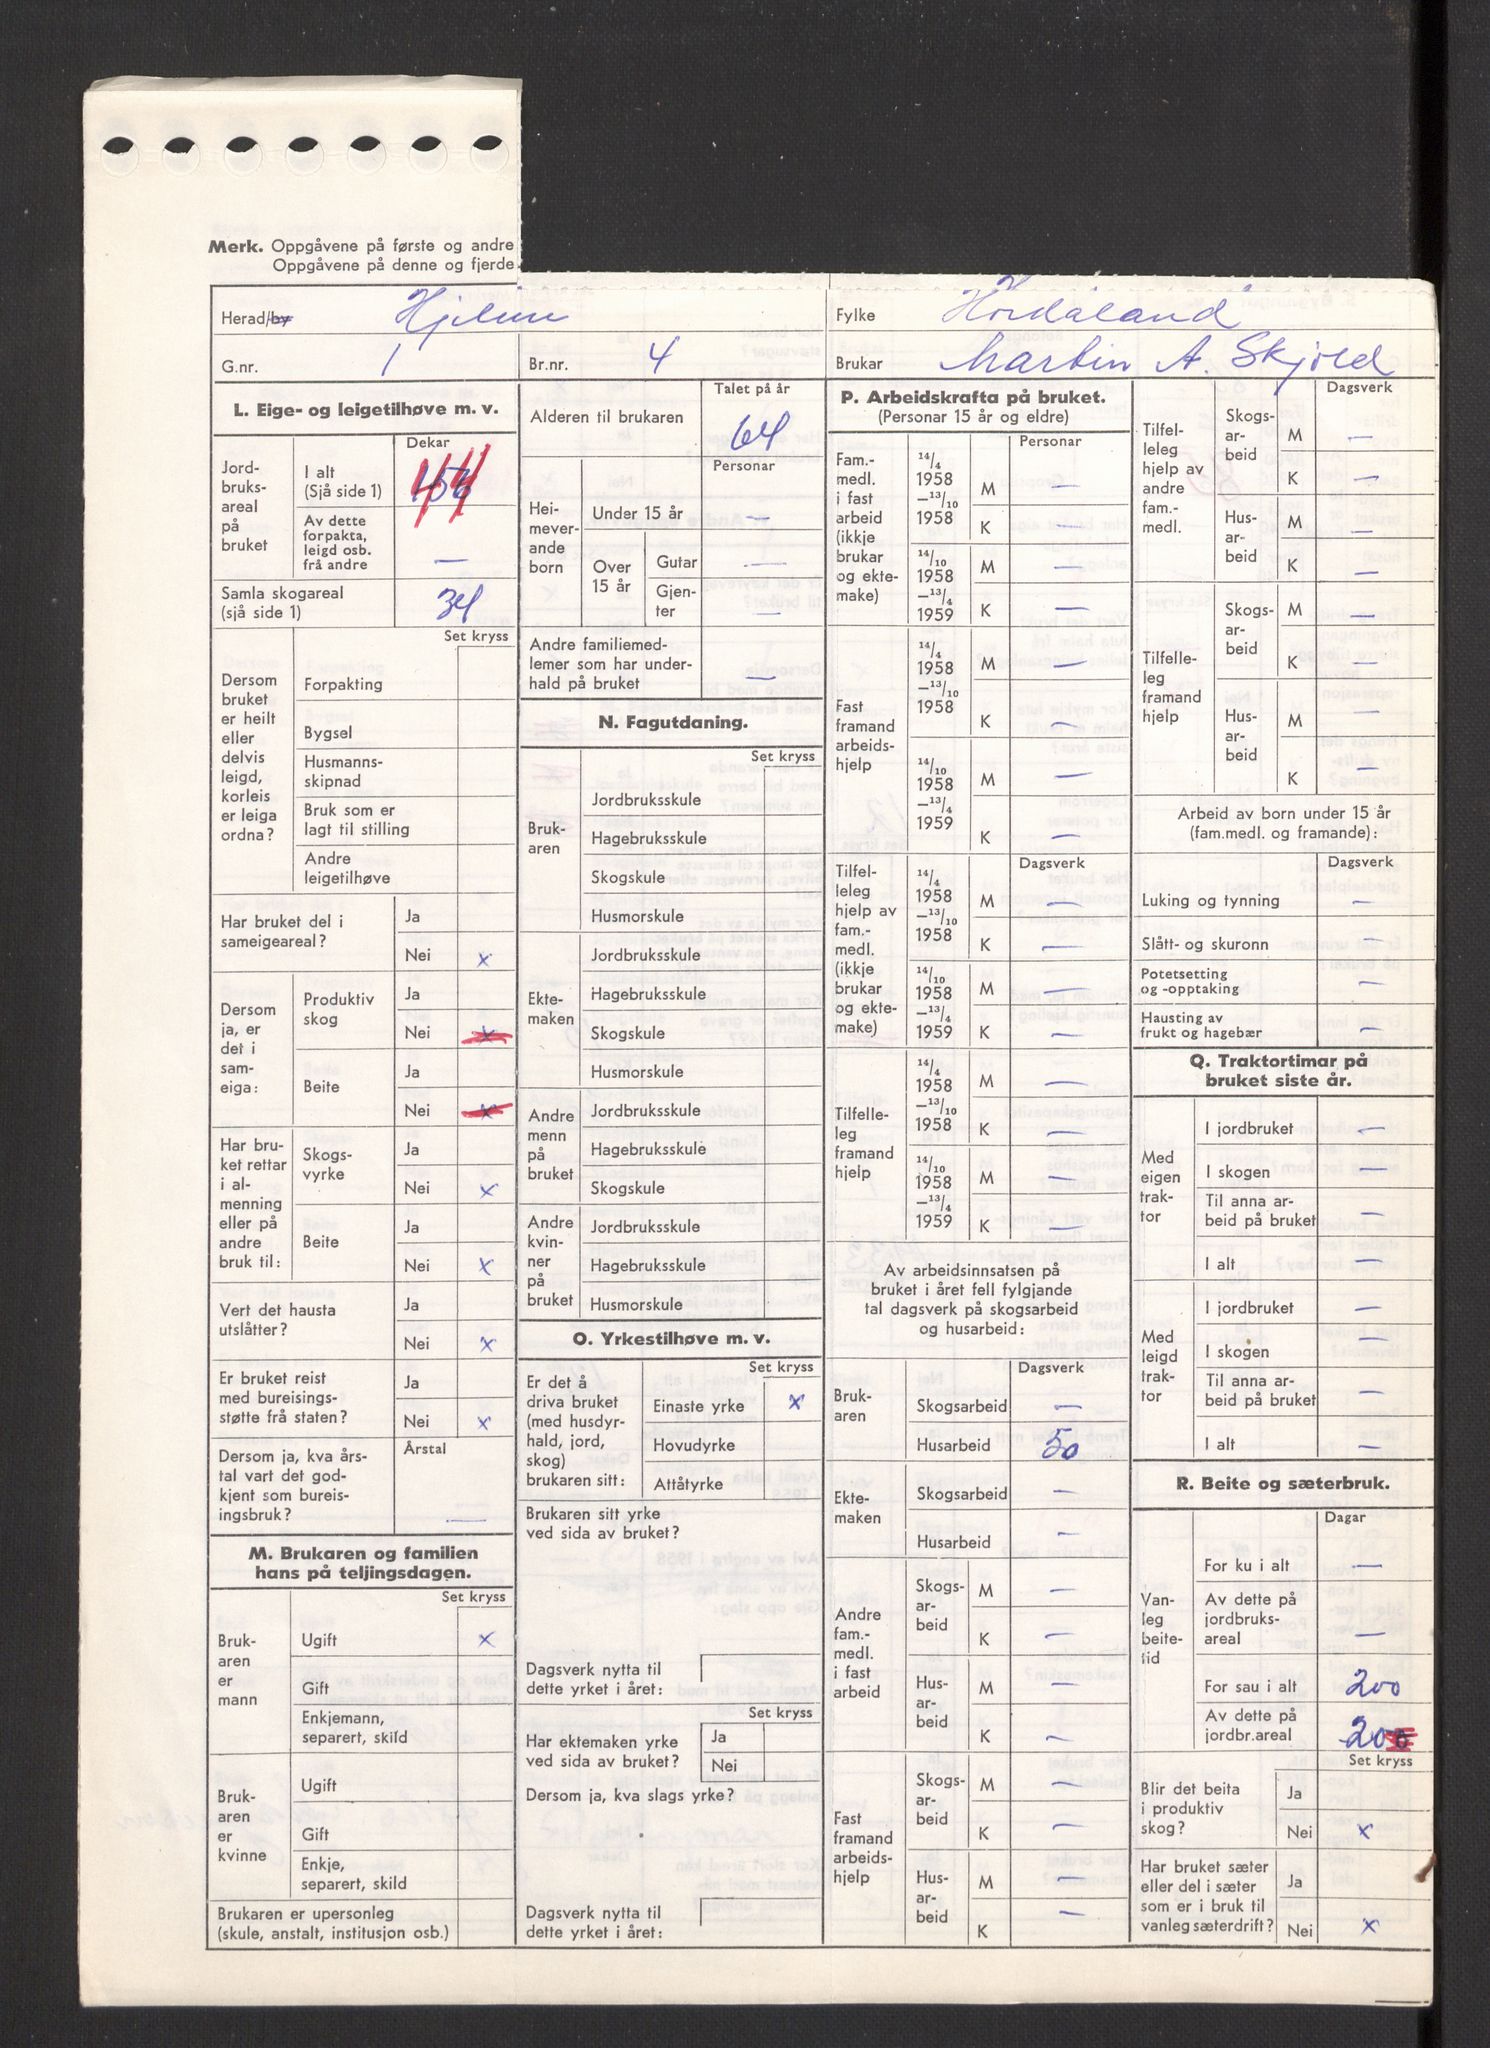 Merk. Oppgåvene på første og andre
Oppgåvene på denne og fjerde
Herad/by Hjelme
Fylke Hordaland
G.nr. 1
Br.nr. 4
Brukar Martin A. Skjold
L. Eige- og leigetilhøve m. v.
Dekar
Jord-
bruks-
areal
på
bruket
I alt
(Sjå side 1)
Av dette
forpakta,
leigd osb.
frå andre —
Samla skogareal
(sjå side 1) 34
Set kryss
Dersom
bruket
er heilt
eller
delvis
leigd,
korleis
er leiga
ordna?
Forpakting
Bygsel
Husmanns-
skipnad
Bruk som er
lagt til stilling
Andre
leigetilhøve
Har bruket del i
sameigeareal?
Ja
Nei x
Dersom
ja, er
det i
sam-
eiga:
Produktiv
skog
Ja
Nei x
Beite
Ja
Nei x
Har bru-
ket rettar
i al-
menning
eller på
andre
bruk til:
Skogs-
vyrke
Ja
Nei x
Beite
Ja
Nei x
Vert det hausta
utslåtter?
Ja
Nei x
Er bruket reist
med bureisings-
støtte frå staten?
Ja
Nei x
Dersom ja, kva års-
tal vart det god-
kjent som bureis-
ingsbruk?
Årstal
—
M. Brukaren og familien
hans på teljingsdagen.
Set kryss
Bruk-
aren
er
mann
Ugift x
Gift
Enkjemann,
separert, skild
Bruk-
aren
er
kvinne
Ugift
Gift
Enkje,
separert, skild
Brukaren er upersonleg
(skule, anstalt, institusjon osb.)
Talet på år
Alderen til brukaren 64
Personar
Hei-
mever-
ande
born
Under 15 år —
Over
15 år
Gutar —
Gjen-
ter —
Andre familiemed-
lemer som har under-
hald på bruket —
N. Fagutdaning.
Set kryss
Bruk-
aren
Jordbruksskule
Hagebruksskule
Skogskule
Husmorskule
Ekte-
maken
Jordbruksskule
Hagebruksskule
Skogskule
Husmorskule
Andre
menn
på
bruket
Jordbruksskule
Hagebruksskule
Skogskule
Andre
kvin-
ner
på
bruket
Jordbruksskule
Hagebruksskule
Husmorskule
O. Yrkestilhøve m. v.
Set kryss
Er det å
driva bruket
(med husdyr-
hald, jord,
skog)
brukaren sitt:
Einaste yrke x
Hovudyrke
Attåtyrke
Brukaren sitt yrke
ved sida av bruket?
Dagsverk nytta til
dette yrket i året:
Set kryss
Har ektemaken yrke
ved sida av bruket?
Ja
Nei
Dersom ja, kva slags yrke?
Dagsverk nytta til
dette yrket i året:
P. Arbeidskrafta på bruket.
(Personar 15 år og eldre)
Personar
Fam.-
medl.
i fast
arbeid
(ikkje
brukar
og ekte-
make)
14/4
1958
—13/10
1958
M —
K —
14/10
1958
—13/4
1959
M —
K —
Fast
framand
arbeids-
hjelp
14/4
1958
—13/10
1958
M —
K —
14/10
1958
—13/4
1959
M —
K —
Dagsverk
Tilfel-
leleg
hjelp av
fam.-
medl.
(ikkje
brukar
og ekte-
make)
14/4
1958
—13/10
1958
M —
K —
14/10
1958
—13/4
1959
M —
K —
Tilfelle-
leg
framand
hjelp
14/4
1958
—13/10
1958
M —
K —
14/10
1958
—13/4
1959
M —
K —
Av arbeidsinnsatsen på
bruket i året fell fylgjande
tal dagsverk på skogsarbeid
og husarbeid:
Dagsverk
Bruk-
aren
Skogsarbeid —
Husarbeid 50
Ekte-
maken
Skogsarbeid —
Husarbeid —
Andre
fam.-
medl.
i fast
arbeid
Skogs-
ar-
beid
M —
K —
Hus-
ar-
beid
M —
K —
Fast
framand
arbeids-
hjelp
Skogs-
ar-
beid
M —
K —
Hus-
ar-
beid
M —
K —
Dagsverk
Tilfel-
leleg
hjelp av
andre
fam.-
medl.
Skogs-
ar-
beid
M —
K —
Hus-
ar-
beid
M —
K —
Tilfelle-
leg
framand
hjelp
Skogs-
ar-
beid
M —
K —
Hus-
ar-
beid
M —
K —
Arbeid av born under 15 år
(fam.medl. og framande):
Dagsverk
Luking og tynning —
Slått- og skuronn —
Potetsetting
og -opptaking —
Hausting av
frukt og hagebær —
Q. Traktortimar på
bruket siste år.
Med
eigen
trak-
tor
I jordbruket —
I skogen —
Til anna ar-
beid på bruket —
I alt —
Med
leigd
trak-
tor
I jordbruket —
I skogen —
Til anna ar-
beid på bruket —
I alt —
R. Beite og sæterbruk.
Dagar
Van-
leg
beite-
tid
For ku i alt —
Av dette på
jordbruks-
areal —
For sau i alt 200
Av dette på
jordbr.areal 200
Set kryss
Blir det beita
i produktiv
skog?
Ja
Nei x
Har bruket sæter
eller del i sæter
som er i bruk til
vanleg sæterdrift?
Ja
Nei x